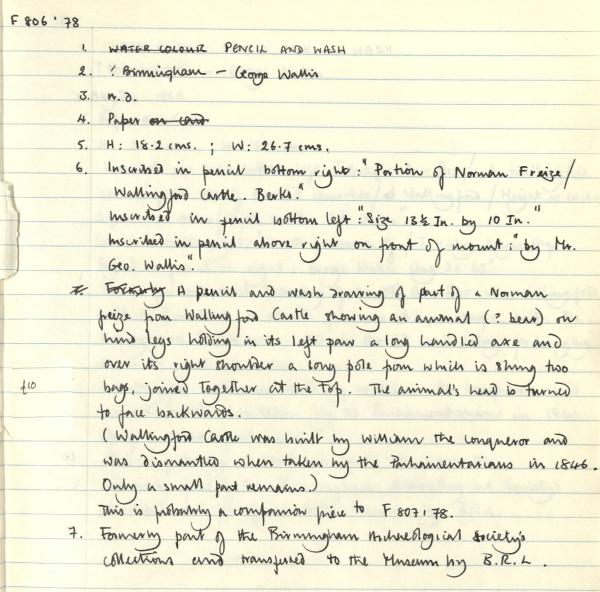 F 806'78
1. WATER COLOUR PENCIL AND WASH
2. ? Birmingham - George Wallis
3. n.d.
4. Paper on card
5. H: 18.2 cms. ; W: 26.7 cms.
6. Inscribed in pencil bottom right: "Portion of Norman Freize/
Wallingford Castle. Berks."
Inscribed in pencil bottom left: "Size 13½ In. by 10 In."
Inscribed in pencil above right on front of mount: "by Mr.
Geo. Wallis".
7. Formerly A pencil and wash drawing of part of a Norman
freize from Wallingford Castle showing an animal (? bear) on
hind legs holding in its left paw a long handled axe and
over its right shoulder a long pole from which is slung two
bags, joined together at the top. The animal's head is turned
£10
to face backwards.
(Wallingford Castle was built by William the Conqueror and
was dismantled when taken by the Parliamentarians in 1846.
Only a small part remains.)
This is probably a companion piece to F 807'78.
7. Formerly part of the Birmingham Archaeological Society's
collections and transferred to the Museum by B.R.L.